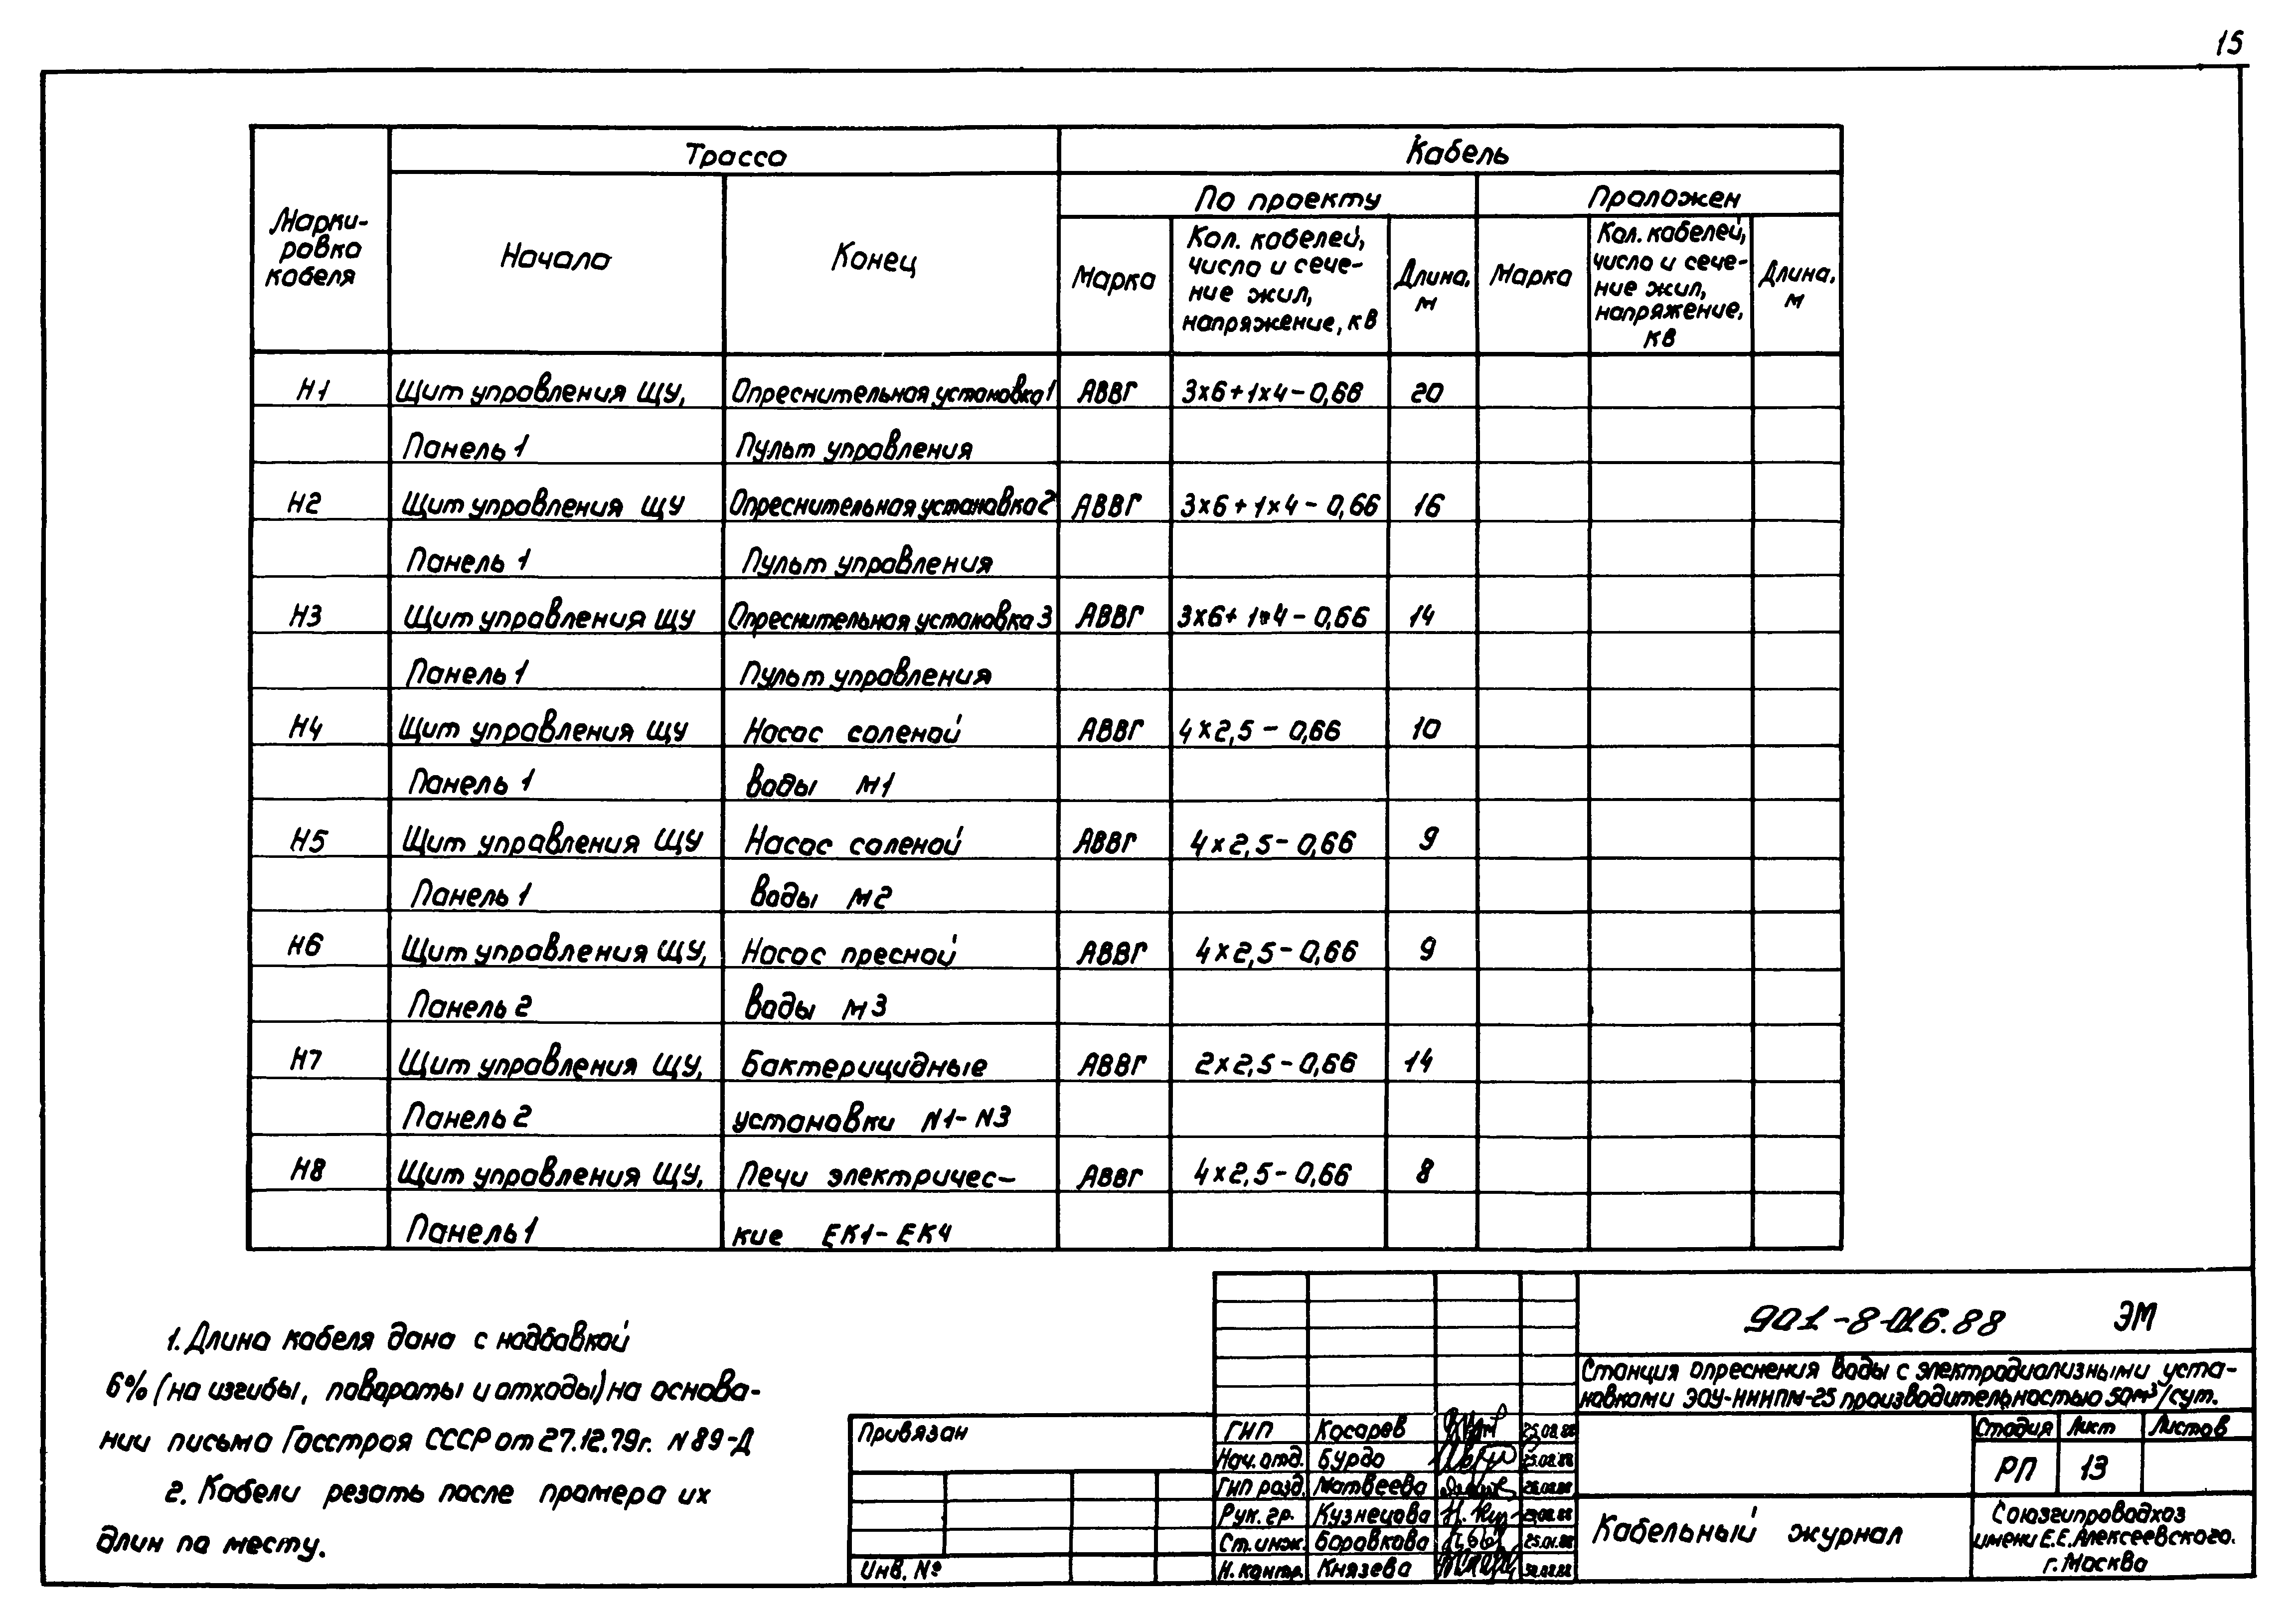 15
Трасса
Кабель
По проекту
Проложен
Марки-
ровка
кабеля
Начало
Конец
Марка
Кол. кабелей,
число и сече-
ние жил,
напряжение, кВ
Длина,
м
Марка
Кол. кабелей,
число и сече-
ние жил,
напряжение,
кВ
Длина,
м
Н1 Щит управления ЩУ, Опреснительная установка 1 АВВГ 3×6+1×4-0,66 20
Панель 1 Пульт управления
Н2 Щит управления ЩУ Опреснительная установка 2 АВВГ 3×6+1×4-0,66 16
Панель 1 Пульт управления
Н3 Щит управления ЩУ Опреснительная установка 3 АВВГ 3×6+1×4-0,66 14
Панель 1 Пульт управления
Н4 Щит управления ЩУ Насос соленой АВВГ 4×2,5-0,66 10
Панель 1 воды М1
Н5 Щит управления ЩУ Насос соленой АВВГ 4×2,5-0,66 9
Панель 1 воды М2
Н6 Щит управления ЩУ, Насос пресной АВВГ 4×2,5-0,66 9
Панель 2 воды М3
Н7 Щит управления ЩУ, Бактерицидные АВВГ 2×2,5-0,66 14
Панель 2 установки N1-N3
Н8 Щит управления ЩУ, Печи электричес- АВВГ 4×2,5-0,66 8
Панель 1 кие ЕК1-ЕК4
1. Длина кабеля дана с надбавкой
6% (на изгибы, повороты и отходы) на основа-
нии письма Госстроя СССР от 27.12.79г. N 89-Д
2. Кабели резать после промера их
длин по месту.
Привязан
Инв. №
ГИП Косарев
Нач. отд. Бурдо
ГИП разд. Матвеева
Рук. гр. Кузнецова
Ст. инж. Боровкова
Н. контр. Князева
901-8-016.88 ЭМ
Станция опреснения воды с электродиализными уста-
новками ЭОУ-НИИПМ-25 производительностью 50м³/сут.
Стадия Лист Листов
РП 13
Кабельный журнал
Союзгипроводхоз
имени Е.Е.Алексеевского.
г. Москва